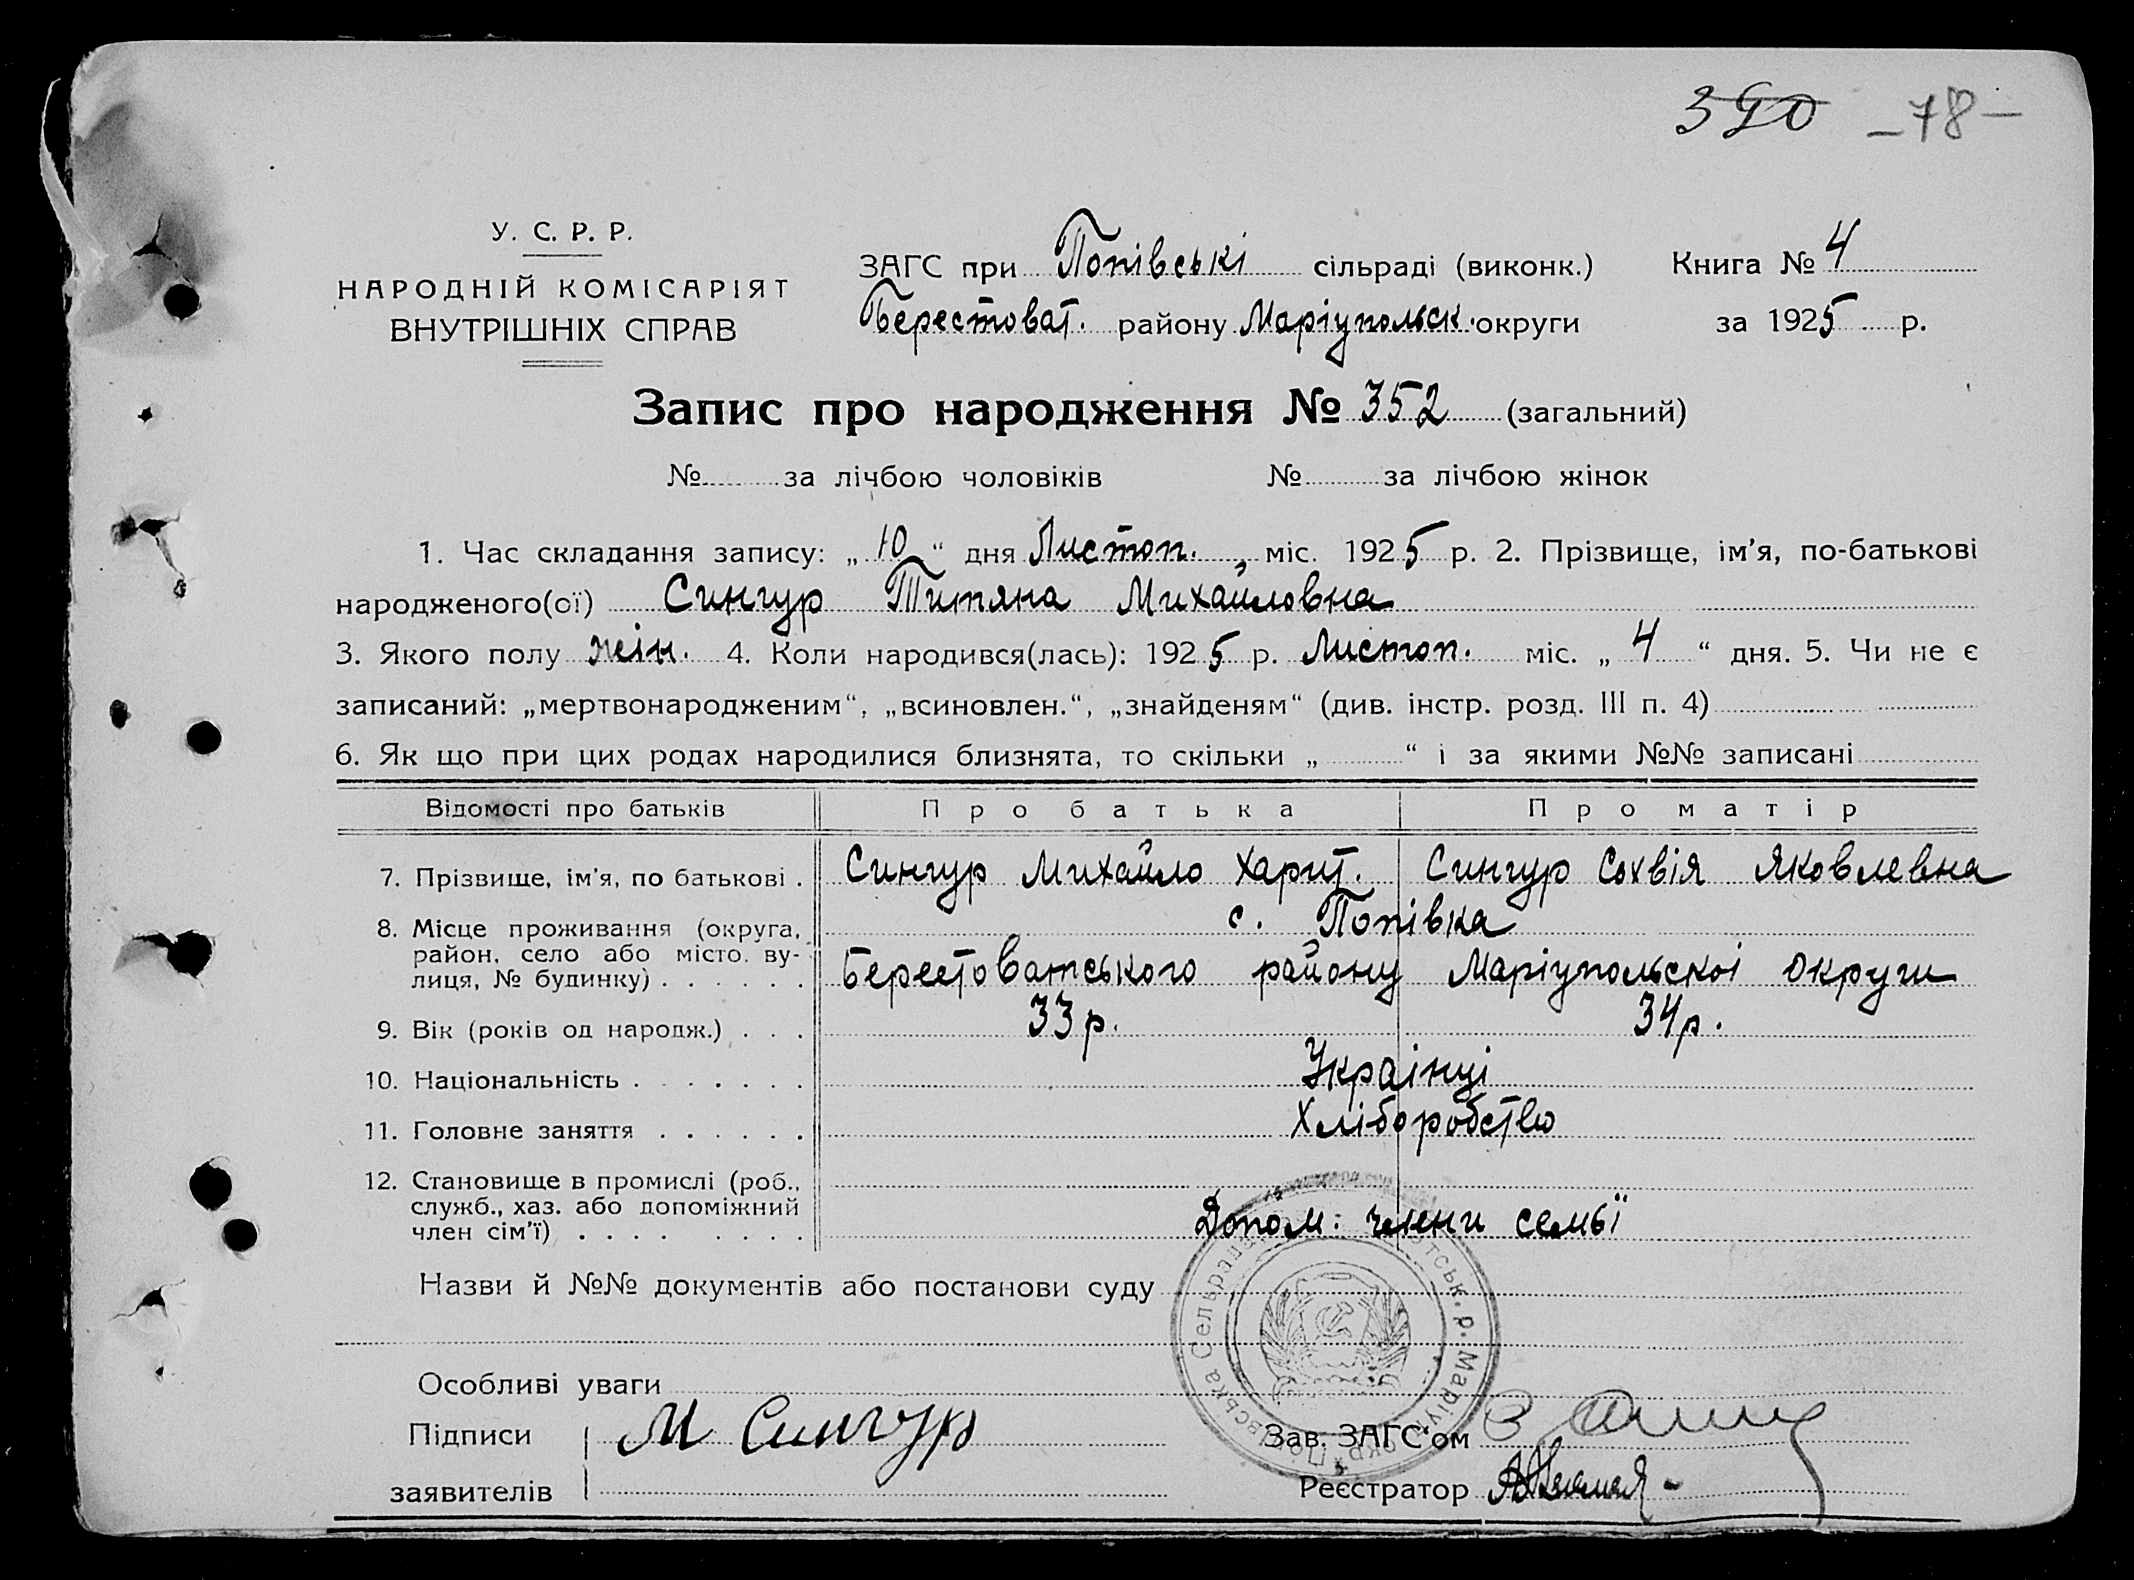 390 — 78 —
У. С. Р. Р.
НАРОДНІЙ КОМІСАРІЯТ
ВНУТРІШНІХ СПРАВ
ЗАГС при Попівські сільраді (виконк.) Книга № 4
Берестоват. району Маріупольск. округи за 1925 р.
Запис про народження № 352 (загальний)
№ за лічбою чоловіків № за лічбою жінок
1. Час складання запису: „10“ дня Листоп. міс. 1925 р. 2. Прізвище, ім'я, по-батькові
народженого(ої) Сингур Титяна Михайловна
3. Якого полу жін. 4. Коли народився(лась): 1925 р. Листоп. міс. „4“ дня. 5. Чи не є
записаний: „мертвонародженим“, „всиновлен.“, „знайденям“ (див. інстр. розд. III п. 4)
6. Як що при цих родах народилися близнята, то скільки „ “ і за якими №№ записані
Відомості про батьків Про батька Про матір
7. Прізвище, ім'я, по батькові . Сингур Михайло Харит. Сингур Сохвія Яковлевна
8. Місце проживання (округа, с. Попівка
район, село або місто, ву- Берестоватського району Маріупольскоі округи
лиця, № будинку) . . . . . .
9. Вік (років од народж.) . . . 33 р. 34 р.
10. Національність . . . . . . . Украінці
11. Головне заняття . . . . . . Хліборобство
12. Становище в промислі (роб.,
служб., хаз. або допоміжний Допом: члени семьї
член сім'ї) . . . . . . . .
Назви й №№ документів або постанови суду
Особливі уваги
Підписи М Сингур Зав. ЗАГС‘ом
заявителів Реєстратор
Попівська Сельрада тськ. р. Маріуп. окр.